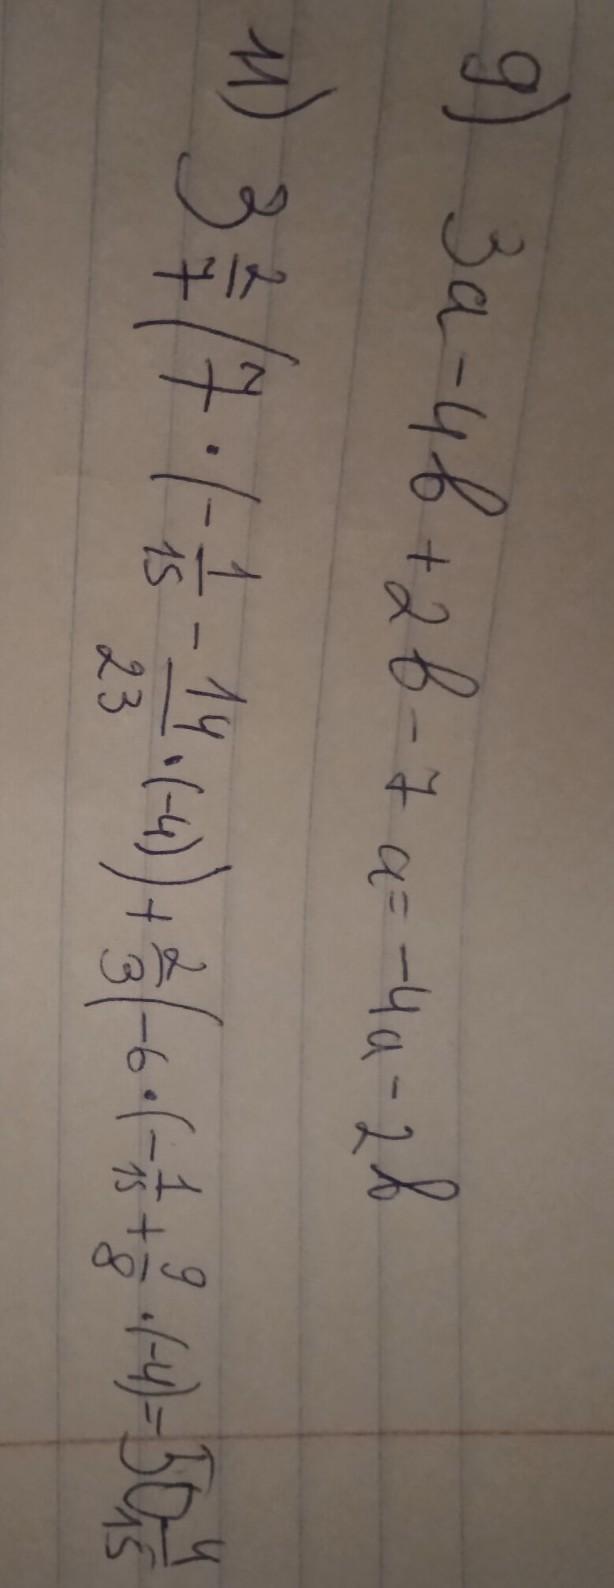 9) 3a - 4b + 2b - 7a = -4a - 2b
11) 3 2/7 (7 · (- 1/15 - 14/23 · (-4)) + 2/3 (-6 · (- 1/15 + 9/8 · (-4) = 50 4/15